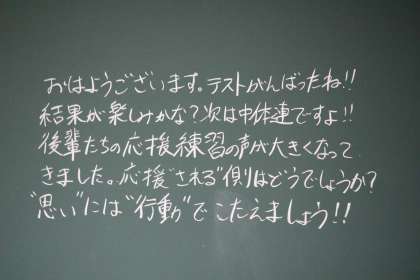 おはようございます。テストがんばったね!!
結果が楽しみかな?次は中体連ですよ!!
後輩たちの応援練習の声が大きくなって
きました。応援"される"側はどうでしょうか?
"思い"には"行動"でこたえましょう!!